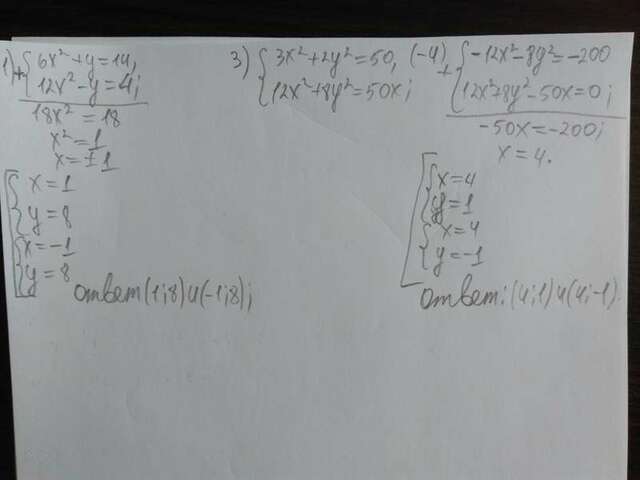 1) + { 6x² + y = 14,
12x² - y = 4;
18x² = 18
x² = 1
x = ±1
x = 1
y = 8
x = -1
y = 8
ответ (1;8) и (-1;8);
3) { 3x² + 2y² = 50, (-4)
12x² + 8y² = 50x;
+ { -12x² - 8y² = -200
12x² + 8y² - 50x = 0;
-50x = -200;
x = 4.
x = 4
y = 1
x = 4
y = -1
ответ: (4;1) и (4;-1).